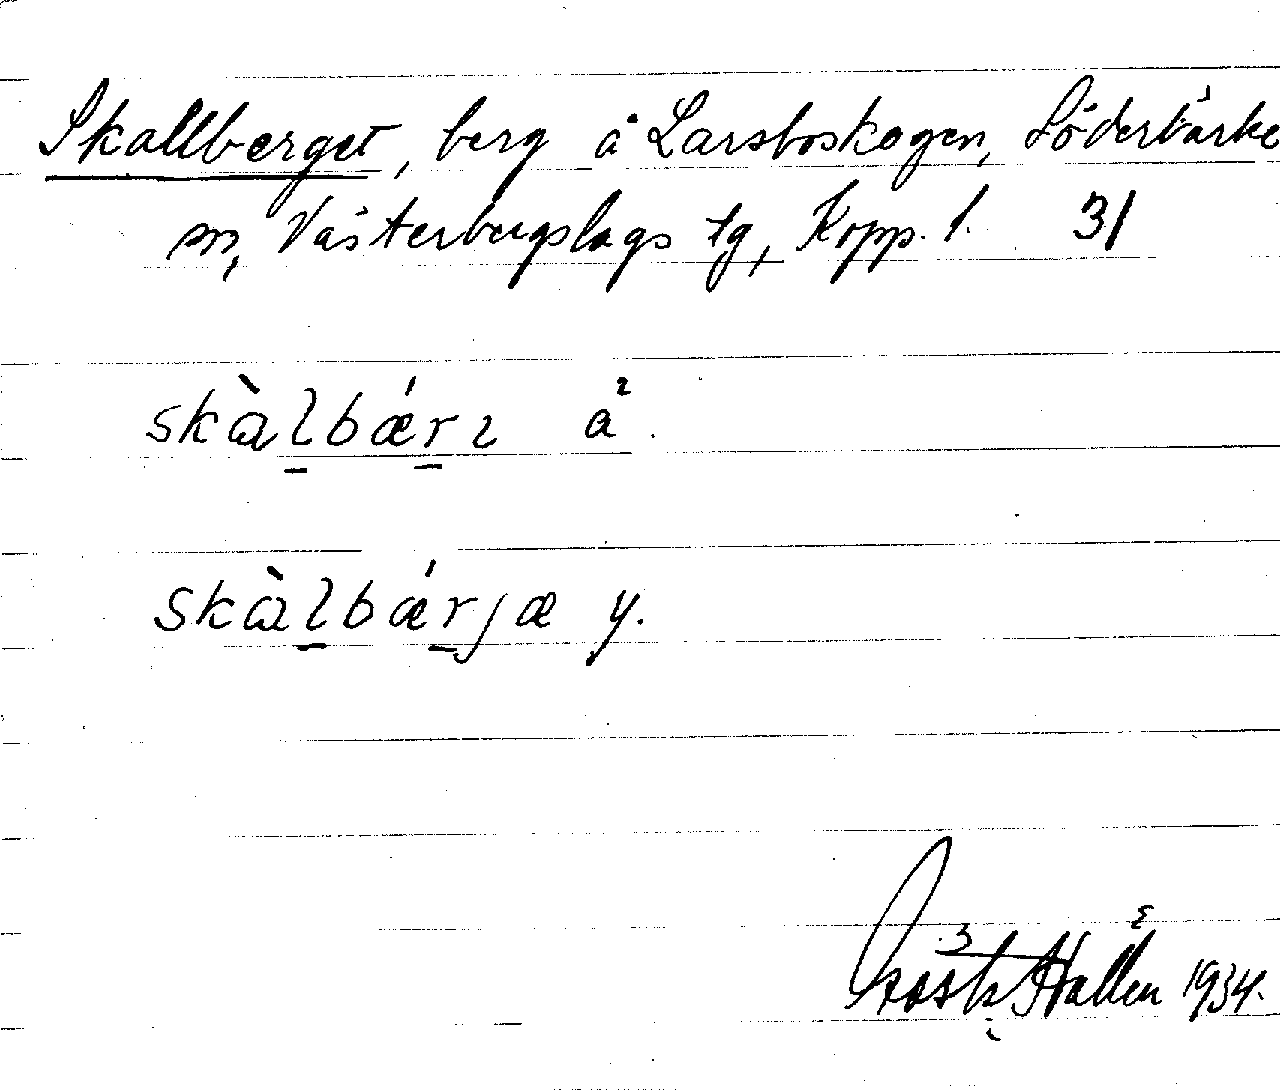 Skallberget, berg å Larsboskogen, Söderbärke
sn, Västerbergslags tg, Kopp. l. 31
skàlbǽrɩ å².
skàlbǽrjæ y.
Gösta Hallén 1934.